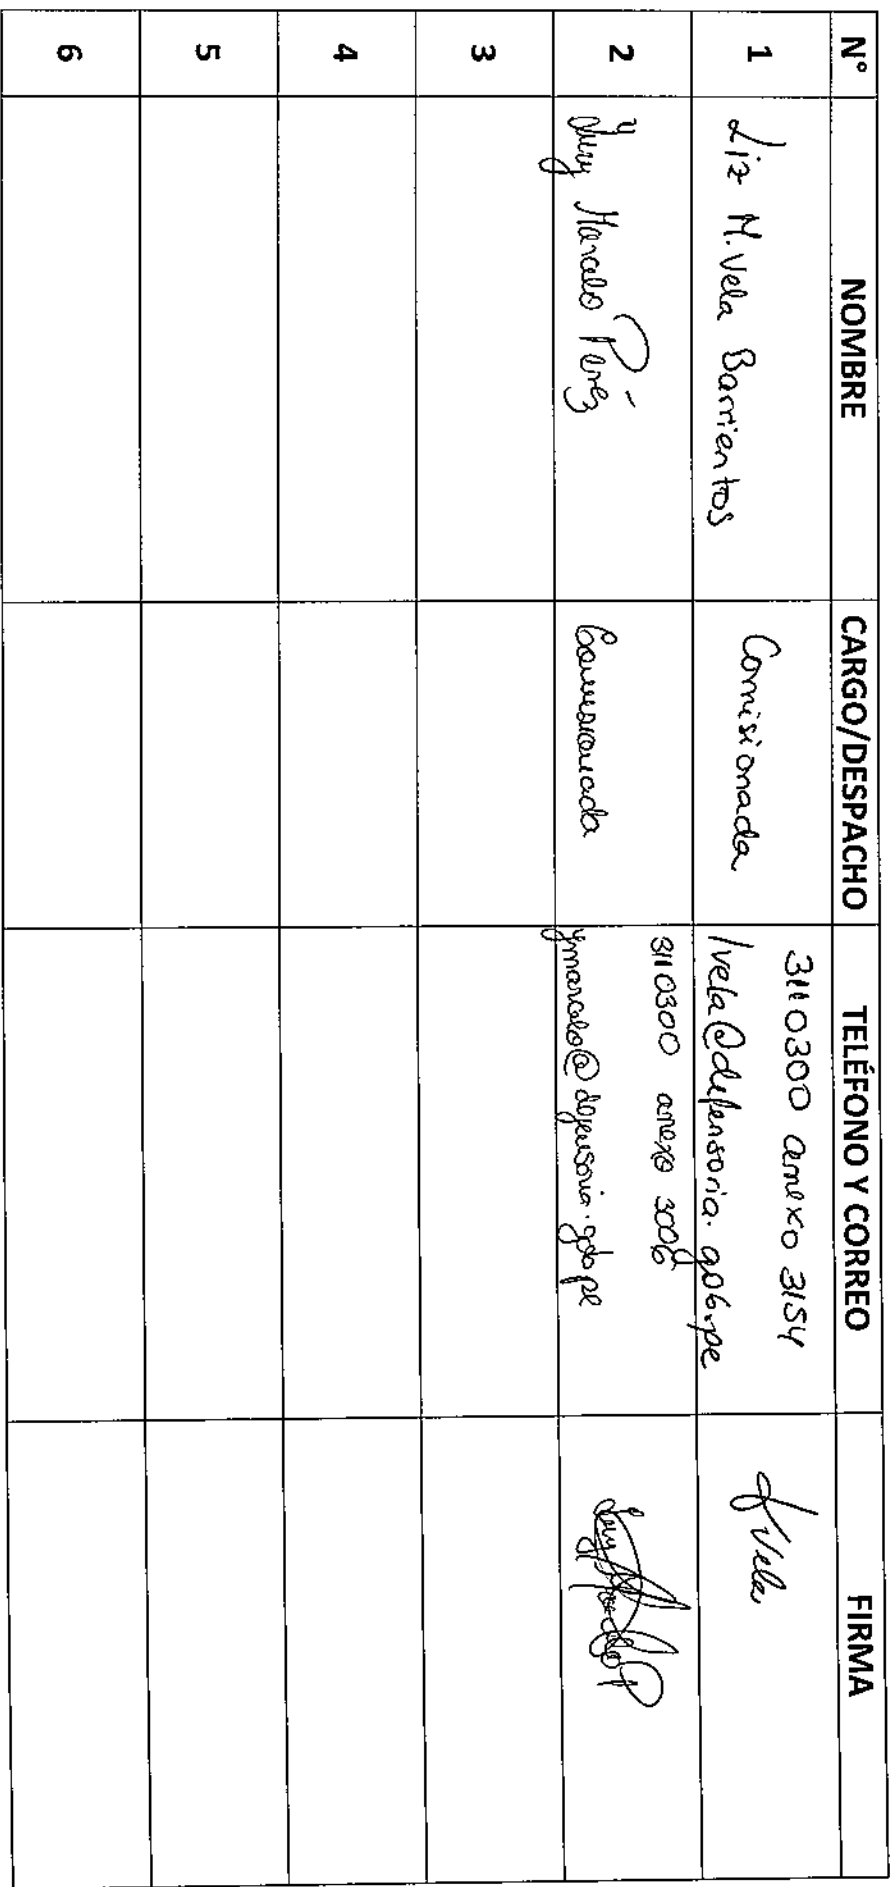 N° NOMBRE CARGO/DESPACHO TELÉFONO Y CORREO FIRMA
1 Liz M. Vela Barrientos Comisionada 3110300 anexo 3154
lvela@defensoria.gob.pe
Vela
2 Marcelo Pérez Comisionada 3110300 anexo 3006
ymarcelo@defensoria.gob.pe
3
4
5
6